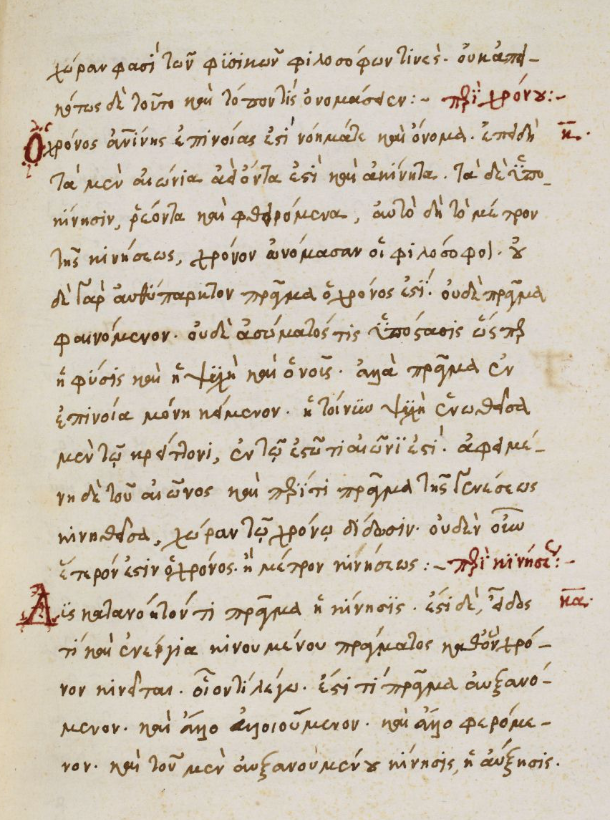 χώραν φασὶ τῶν φϊσικῶν φιλοσόφων τινές· οὐκ ἀπει–
κότως δὲ τοῦτο καὶ τόπον τὶς ὀνομάσειεν:– περὶ χρόνου:–
Ὁ χρόνος ἀνθρωπίνης ἐπινοίας ἐστὶ νόημάτε καὶ ὄνομα· ἐπειδὴ κ̅
τὰ μὲν αἰώνια ἀεὶ ὄντα ἐστὶ καὶ ἀκίνητα· τὰ δὲ ὑπο–
κίνησιν, ῥέοντα καὶ φθειρόμενα, αὐτὸ δὴ τὸ μέτρον
τῆς κινήσεως, χρόνον ὠνόμασαν οἱ φιλόσοφοι· οὐ
δὲ γὰρ αὐθϋπαρκτον πρᾶγμα ὁ χρόνος ἐστί· οὐδὲ πρᾶγμα
φαινόμενον· οὐδὲ ἀσώματός τις ὑπόστασις ὥσπερ
ἡ φύσις καὶ ἡ ψυχὴ καὶ ὁ νοῦς· ἀλλὰ πρᾶγμα ἐν
ἐπινοία μόνη κείμενον· ἡ τοίνυν ψυχὴ ἑνωθεῖσα
μὲν τῷ κρείττονι, ἐν τῷ ἑστῶτι αἰῶνϊ ἐστί· ἀφεμέ–
νη δὲ τοῦ αἰῶνος καὶ περίτι πρᾶγμα τῆς γενέσεως
κινηθεῖσα, χώραν τῷ χρόνῳ δίδωσιν· οὐδὲν οὖν
ἕτερόν ἐστιν ὁ χρόνος· ἢ μέτρον κινήσεως:– περὶ κινήσεως:–
Δὶς κατανοητόν τι πρᾶγμα ἡ κίνησϊς· ἐστὶ δὲ, εἶδος κ̅α̅
τὶ καὶ ἐνέργια κινουμένου πράγματος καθ' ὃν χρό–
νον κινεῖται· οἷον τὶ λέγω· ἐστὶ τὶ πρᾶγμα αὐξανό–
μενον· καὶ ἄλλο ἀλλοιούμενον· καὶ ἄλλο φερόμε–
νον· καὶ τοῦ μὲν αὐξανουμένου κίνησις, ἡ αὔξησις.